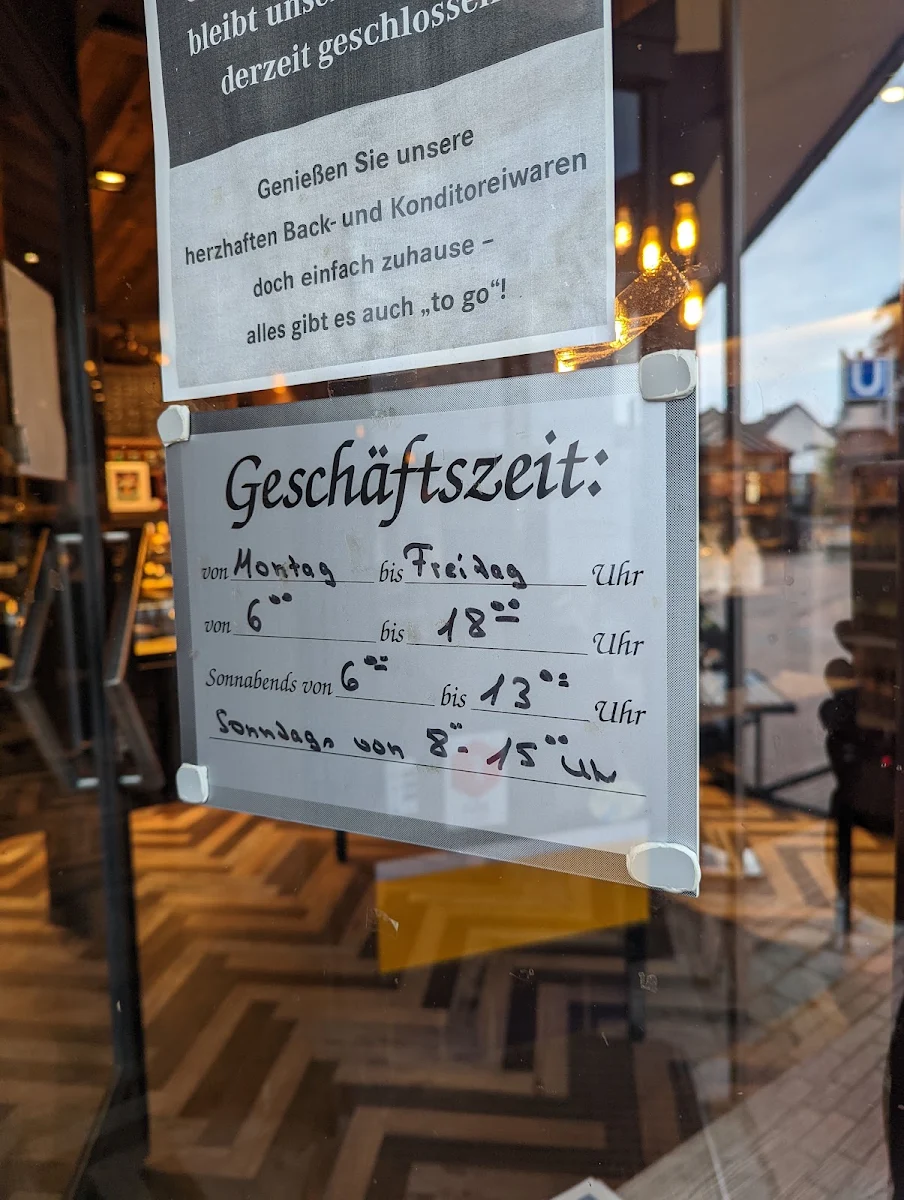 bleibt
derzeit geschlossen
Genießen Sie unsere
herzhaften Back- und Konditoreiwaren
doch einfach zuhause –
alles gibt es auch „to go“!
Geschäftszeit:
von Montag bis Freidag Uhr
von 6⁰⁰ bis 18⁰⁰ Uhr
Sonnabends von 6⁰⁰ bis 13⁰⁰ Uhr
Sonndags von 8⁰⁰- 15⁰⁰ Uhr
U